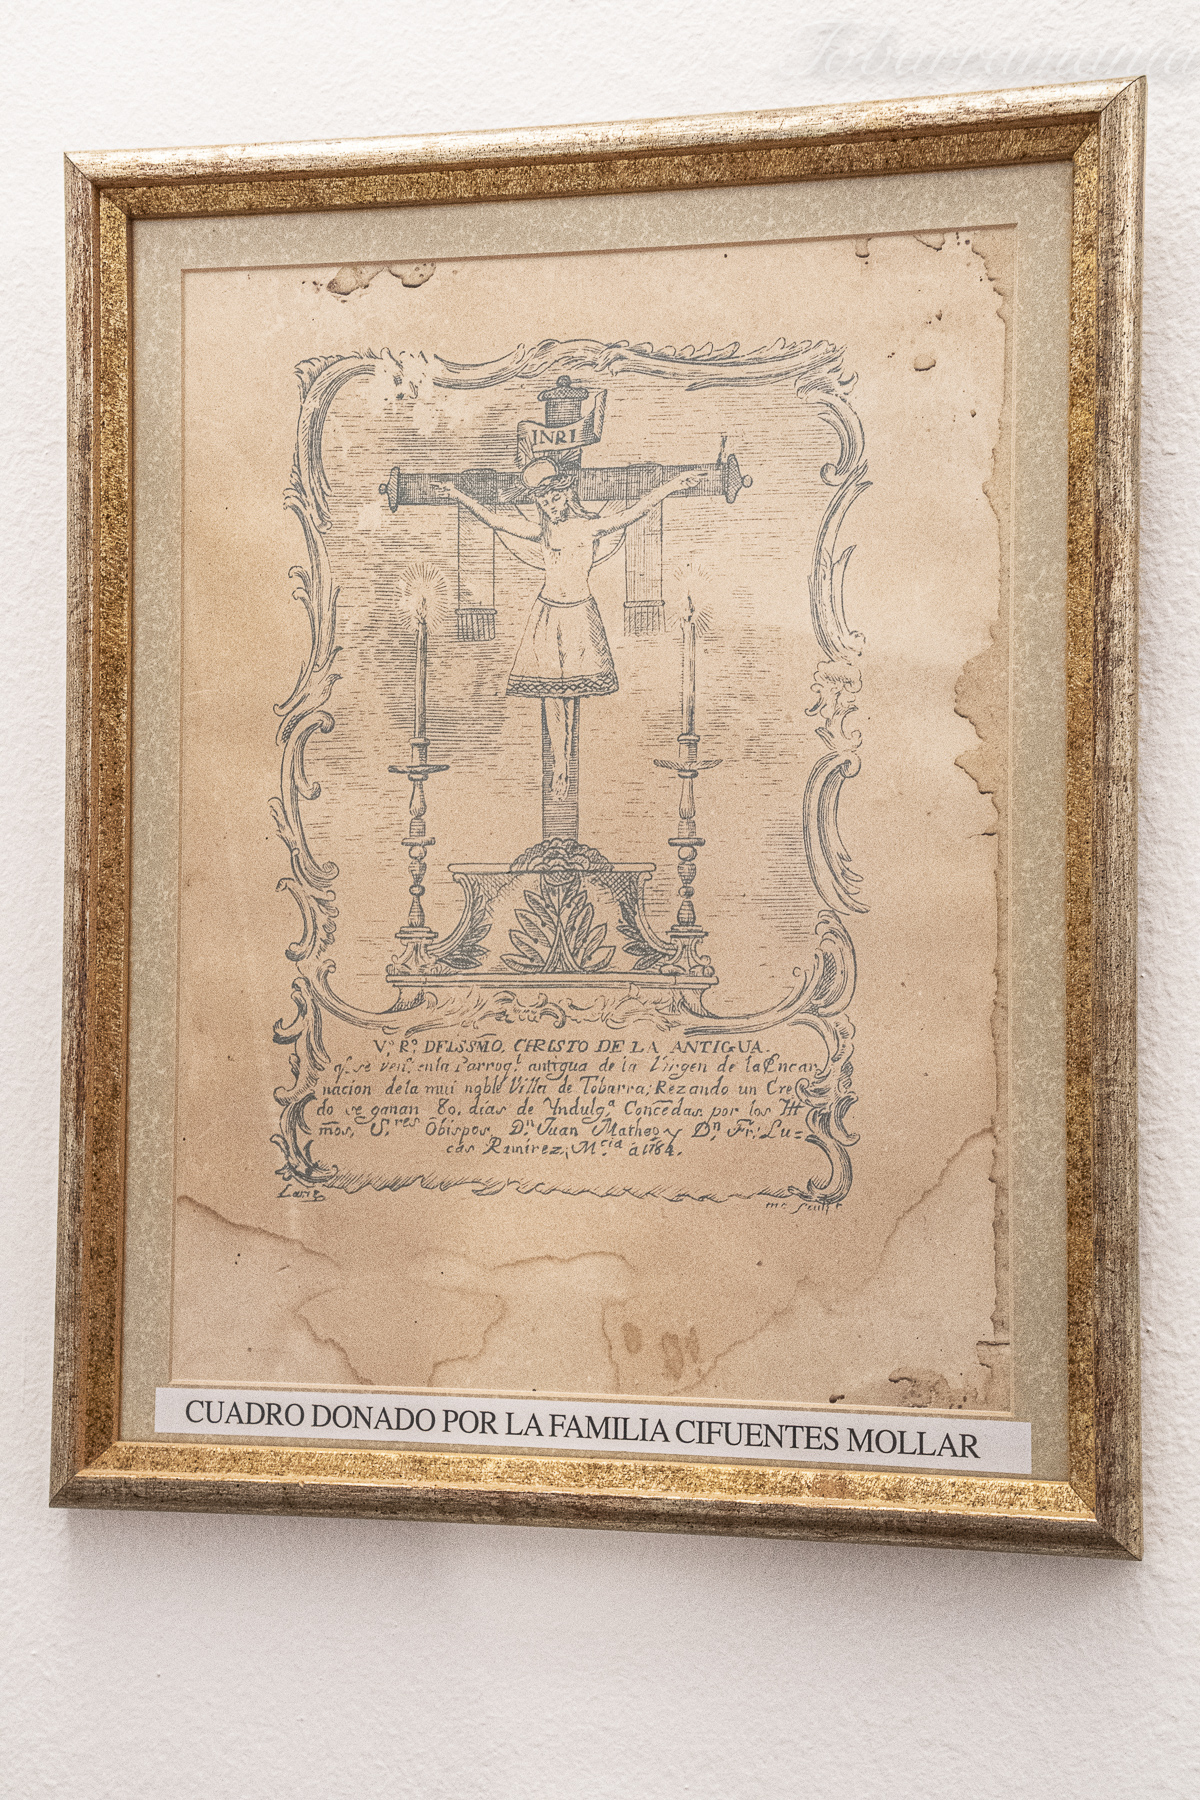 Tobarramanía
INRI
V.º R.º DELSSMO. CHRISTO DE LA ANTIGUA.
q.e se ven.ª enla Parroq.l antigua de la Virgen de la Encar
nacion dela mui noble Villa de Tobarra; Rezando un Cre
do se ganan 80. días de Yndulg.ª Concedas. por los Ill
mos, S.res Obispos, D.n Juan Matheo y D.n Fr. Lu=
cas Ramirez, M.cia á 1784.
sculpt
CUADRO DONADO POR LA FAMILIA CIFUENTES MOLLAR